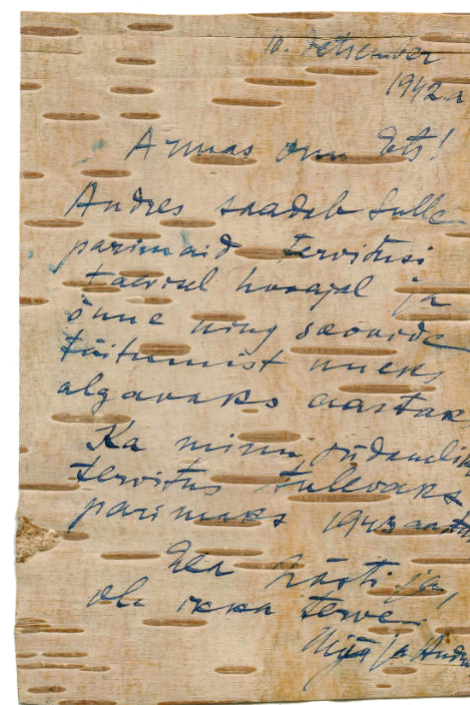 10. Detsember
1942. a
Armas onu Ets!
Andres saadab Sulle
parimaid tervitusi
talvisel hooajal ja
õnne ning soovide
täitumist uueks
algavaks aastak
Ka minu südamlik
tervitus tulevaks
parimaks 1943 aasta
Ela hästi ja,
ole ikka terve.
ja Andr